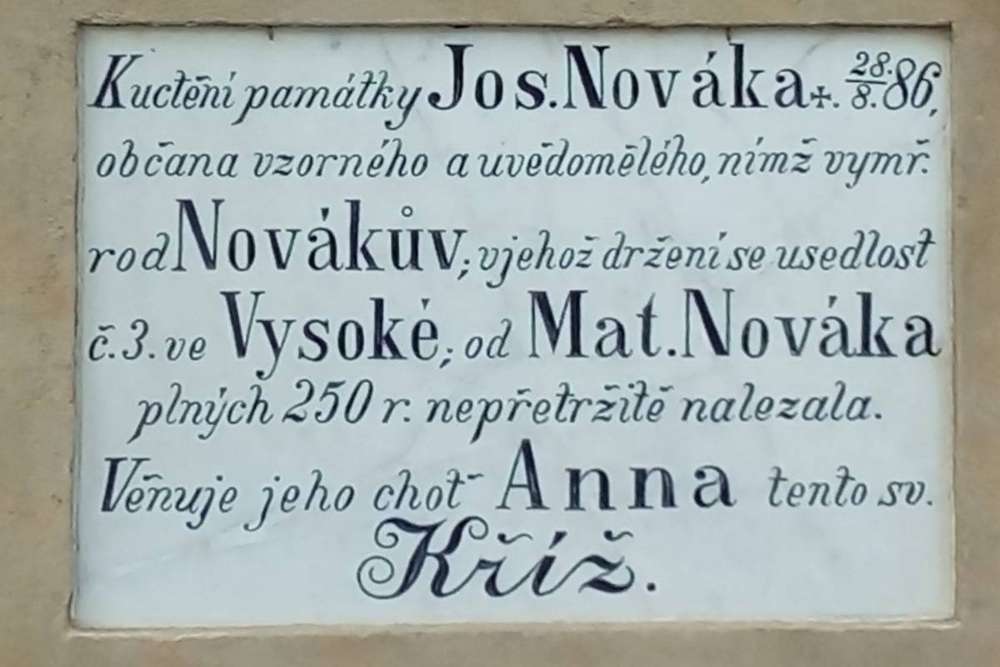 Kuctění památky Jos. Nováka +. 28./8. 86,
občana vzorného a uvědomělého, nímž vymř.
rod Novákův; vjehož držení se usedlost
č. 3. ve Vysoké; od Mat. Nováka
plných 250 r. nepřetržitě nalezala.
Věnuje jeho choť Anna tento sv.
Kříž.